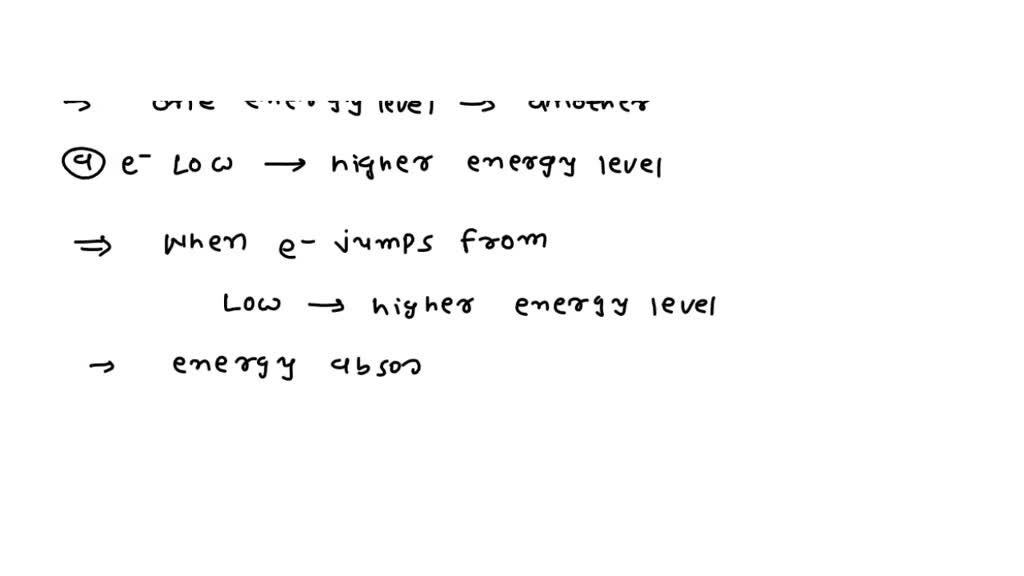 → one energy level → another
ⓐ e⁻ Low → higher energy level
⇒ When e⁻ jumps from
Low → higher energy level
→ energy absor